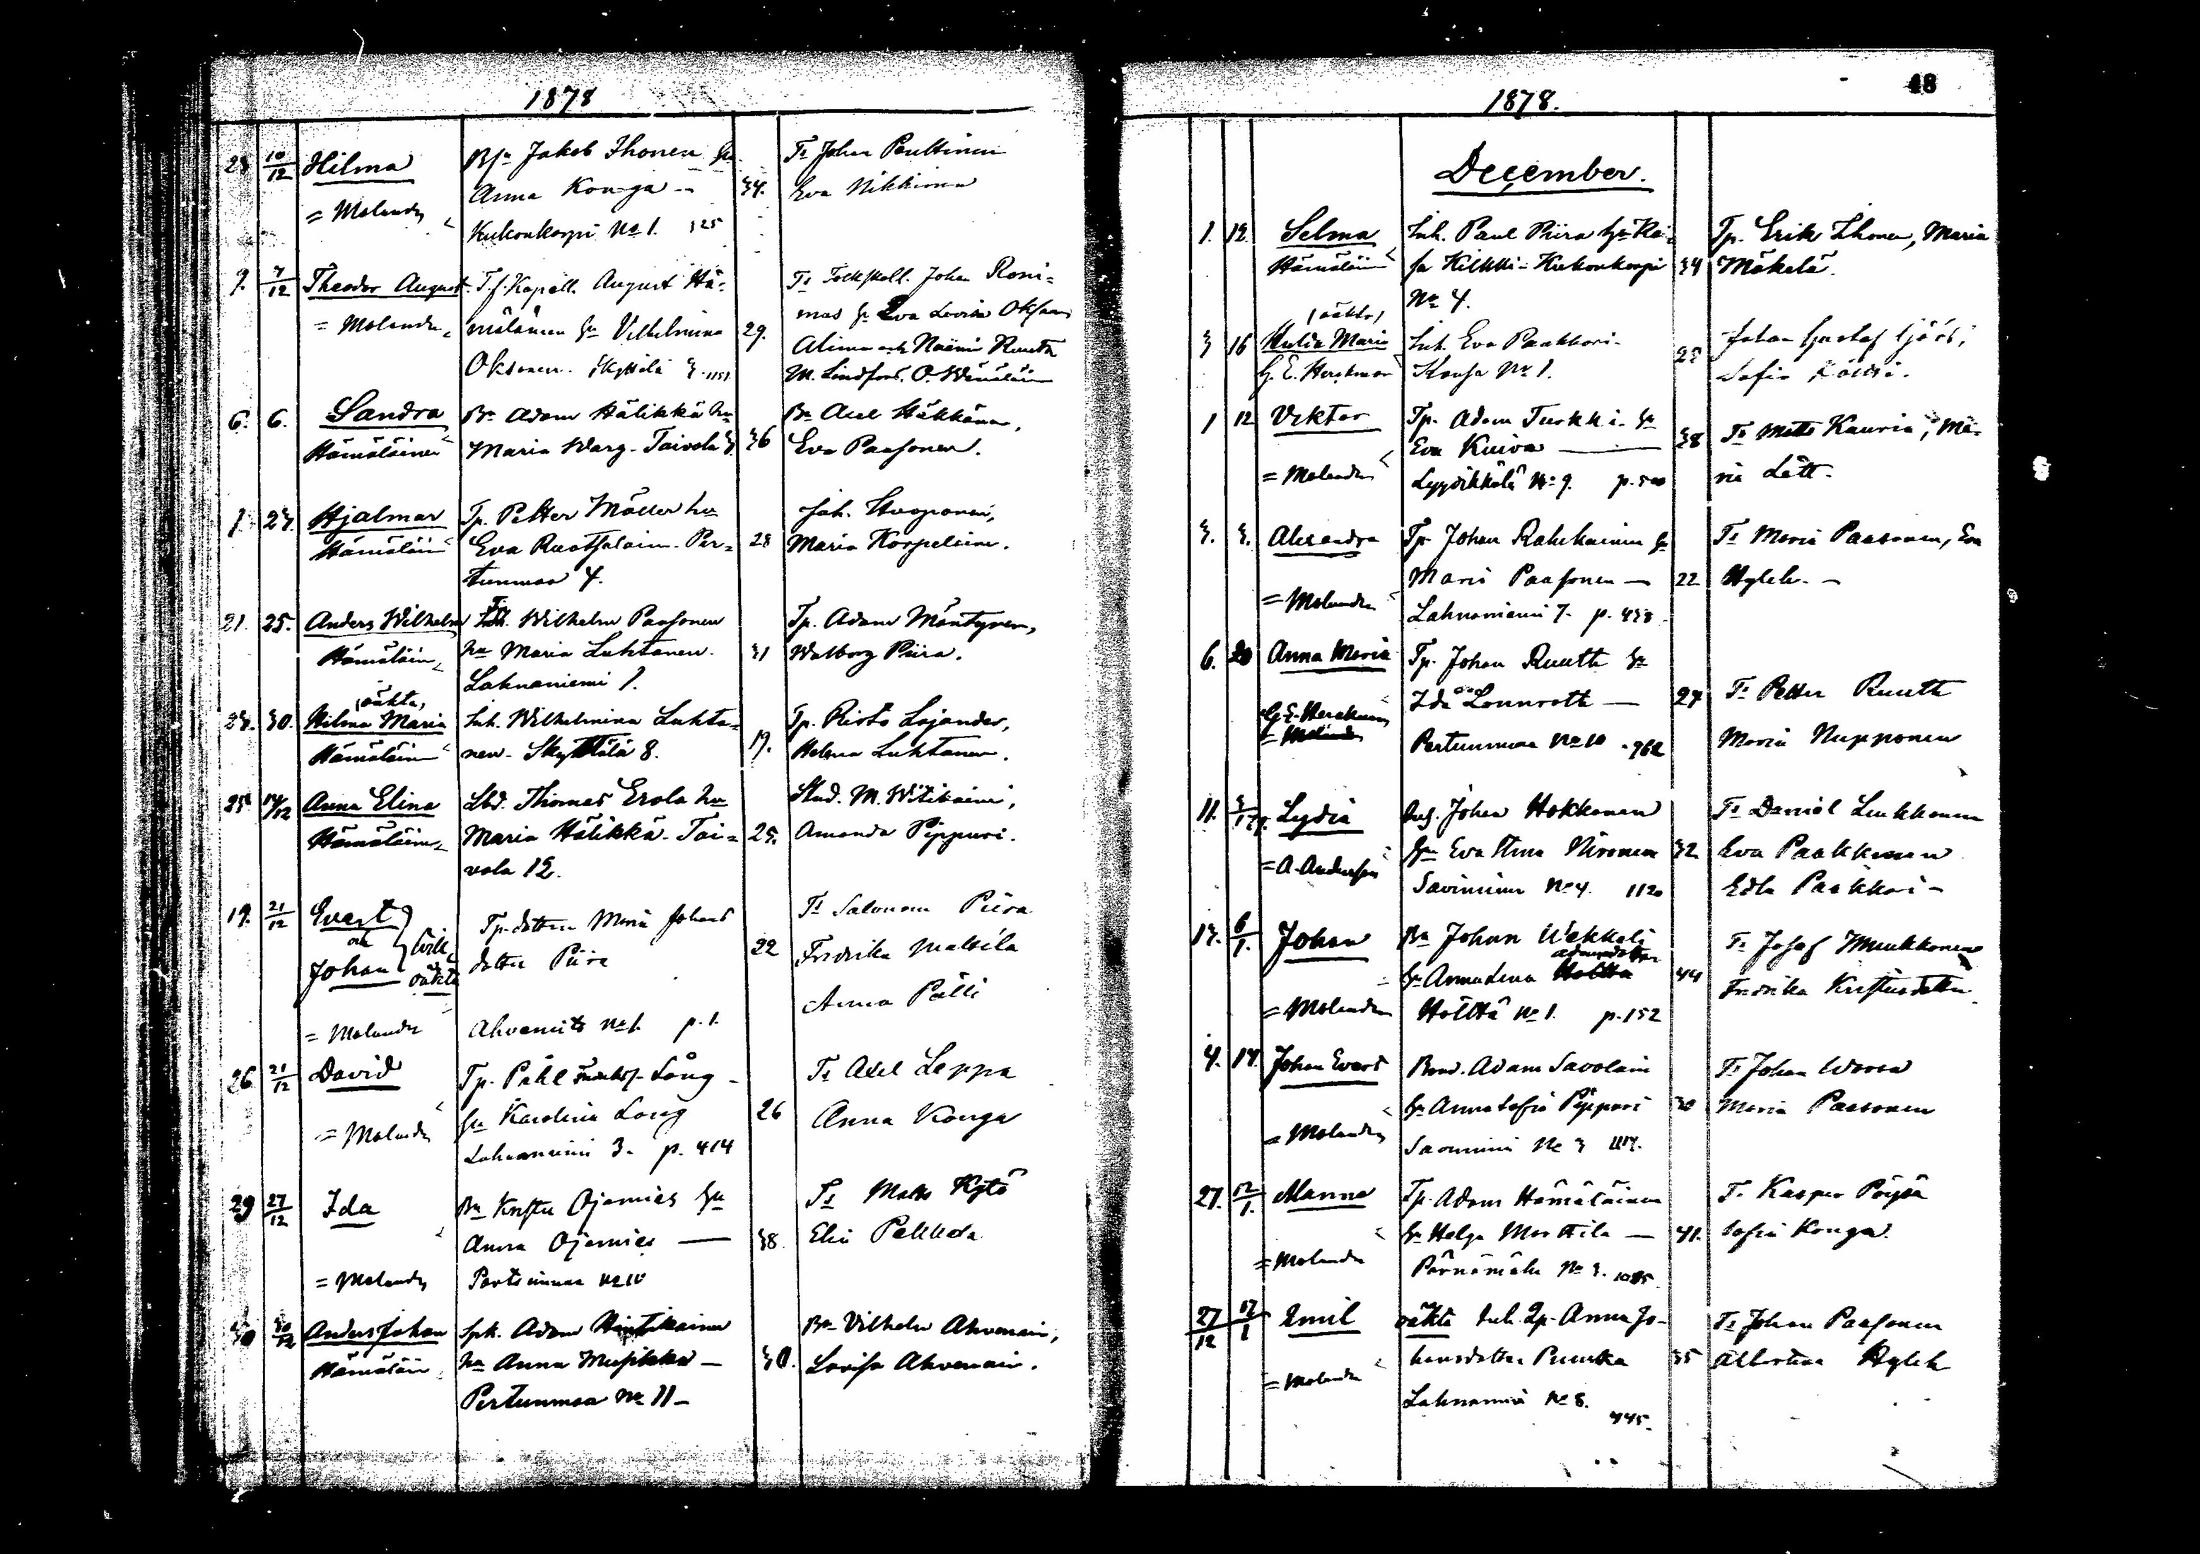 1878
28 10/12 Hilma
Bs. Jakob Ihonen hu
Anna Konga - 34.
Kukonkorpi No 1. 325
= Molander
Ts Johan Penttinen
Eva Nikkinen
9. 7/12 Theodor August
= Molander
T.f. Kapell. August Hä-
mäläinen hu Vilhelmina 29.
Oksanen. Skyttilä 3. 1151
Ts Folkskoll. Johan Roni-
mus hu Eva Lovisa Oksanen
Alina och Naëmi Ruuth
M. Lindfors. O.
6. 6. Sandra
Hämäläinen
Bn Adam Hälikkä hu
Maria Warg. Taivola 3 36
Bn Axel Häkkänen,
Eva Paasonen.
1. 23. Hjalmar
Hämäläinen
Tp. Petter Möller hu
Eva Ruotsalain. Per- 28
tunmaa 4.
Joh. Huoponen,
Maria Korpelain.
21. 25. Anders Wilhelm
Hämäläin
Wilhelm Paasonen
hu Maria Luhtanen. 31
Lahnaniemi 1.
Tp. Adam Mäntynen,
Walborg Piira.
23. 30. oäkta,
Hilma Maria
Hämäläin
Inh. Wilhelmina Luhta-
nen. Skyttälä 8. 19.
Tp. Risto Lojander,
Helena Luhtanen.
25 14/12 Anna Elina
Hämäläin
Lbd. Thomas Erola hu
Maria Hälikkä. Tai- 25.
vola 12.
Stud. M. Witikain,
Amanda Pippuri.
19. 21/12 Evert
och
Johan
oäkta
= Molander
Tp. dottern Maria Johans
dotter Piira 22
Ahvenisto No 1. p. 1.
Ts Salomon Piira
Fredrika Mattila
Anna Pälli
26 21/12 David
= Molander
Tp. Påhl Lång -
hu Karolina Long 26
Lahnaniemi 3. p. 414
Ts Axel Leppa
Anna Konga
29 27/12 Ida
= Molander
Bn Krister Ojamies hu
Anna Ojamies — 38.
Pertunmaa No 10
Ts Mats Kytö
Elin Pekkola
30 30/12 Anders Johan
Hämäläin
Spk. Adam Hintikainen
hu Anna Musikka — 30.
Pertunmaa No 11 -
Bn Vilhelm Ahvenain,
Lovisa Ahvenain.
48
1878.
December.
1. 12. Selma
Hämäläinen
Inh. Paul Piira hu Kai-
sa Kilkki - Kukonkorpi 34
No 4.
Tp. Erik Ihonen, Maria
Mäkelä.
3 16 (oäkta)
Hulda Maria
G. E. Herckman
Inh. Eva Paakkari
No 1.
Johan Gustaf Sjöös,
Sofia
1 12 Viktor
= Molander
Tp. Adam Turkki. hu
Eva Kuiva — 38
Lyysikkälä No 9. p. 500
Ts Matts Kauria, Ma-
ria Lätt.
3. 3. Alexandra
= Molander
Tp Johan Rahikainen hu
Maria Paasonen — 22
Lahnaniemi 7. p. 438
Ts Maria Paasonen, Eva
Hyleh. -
6. 20 Anna Maria
G. E. Herckman
= Molander
Tp. Johan Ruuth hu
Ida Lönnroth — 27
Pertunmaa No 10 .962
Ts Petter Ruuth
Maria Nupponen
11. Lydia
= A. Anderssin
Johan Hokkanen
hu Eva Stina Nironen 32
Savinimi No 4. 1120
Ts Daniel Liukkonen
Eva Paakkunen
Edla Paakkari -
13. 6/1. Johan
= Molander
Bn Johan Wekkeli
Adamsdotter
hu Anna Lena Hölttä 44
Hölttä No 1. p. 152
Ts Josef Muukkonen
Fredrika Kristersdotter
4. 14. Johan Evert
= Molander
Bond. Adam Savolain
hu Anna Sofia Pippuri 30
Savinimi No 3 1117.
Ts Johan Worna
Maria Paasonen
27. 12/1. Manna
= Molander
Tp. Adam Hämäläinen
hu Helga Marttila — 41.
Pärnämäki No 3. 1085
Ts Kasper Pöysä
Sofia Konga.
27/12 17/1 Emil
= Molander
oäkta Inh. Qp. Anna Jo-
hansdotter Purtka 35
Lahnaniemi No 8.
445.
Ts Johan Paasonen
Albertina Hyleh